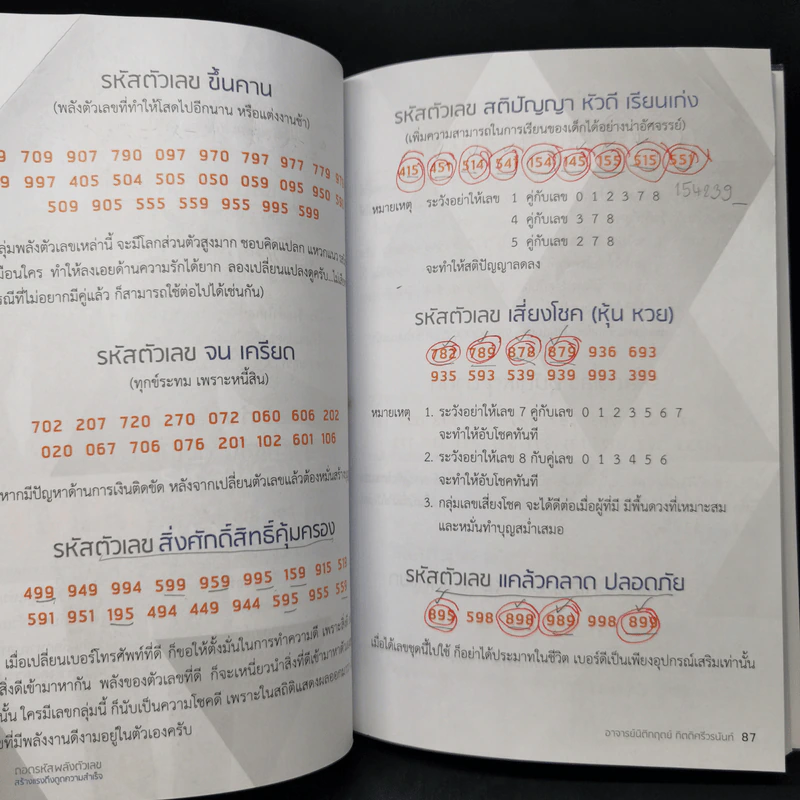 รหัสตัวเลข ขึ้นคาน
(พลังตัวเลขที่ทำให้โสดไปอีกนาน หรือแต่งงานช้า)
709 907 790 097 970 797 977 779
997 405 504 505 050 059 095 950
509 905 555 559 955 995 599
ลุ่มพลังตัวเลขเหล่านี้ จะมีโลกส่วนตัวสูงมาก ชอบคิดแปลก แหวกแนว
มือนใคร ทำให้ลงเอยด้วยความรักได้ยาก ลองเปลี่ยนแปลงดูครับ...
รณีที่ไม่อยากมีคู่แล้ว ก็สามารถใช้ต่อไปได้เช่นกัน)
รหัสตัวเลข จน เครียด
(ทุกข์ระทม เพราะหนี้สิน)
702 207 720 270 072 060 606 202
020 067 706 076 201 102 601 106
หากมีปัญหาด้านการเงินติดขัด หลังจากเปลี่ยนตัวเลขแล้วต้องหมั่นสร้าง
รหัสตัวเลข สิ่งศักดิ์สิทธิ์คุ้มครอง
499 949 994 599 959 995 159 915 519
591 951 195 494 449 944 595 955 559
เมื่อเปลี่ยนเบอร์โทรศัพท์ที่ดี ก็ขอให้ตั้งมั่นในการทำความดี เพราะสิ่งดี
สิ่งดีเข้ามาหากัน พลังของตัวเลขที่ดี ก็จะเหนี่ยวนำสิ่งที่ดีเข้ามาหาตัว
นั้น ใครมีเลขกลุ่มนี้ ก็นับเป็นความโชคดี เพราะในสถิติแสดงผลออกมา
ขที่มีพลังงานดีงามอยู่ในตัวเองครับ
ถอดรหัสพลังตัวเลข
สร้างแรงดึงดูดความสำเร็จ
รหัสตัวเลข สติปัญญา หัวดี เรียนเก่ง
(เพิ่มความสามารถในการเรียนของเด็กได้อย่างน่าอัศจรรย์)
415 451 514 541 154 145 155 515 551
หมายเหตุ ระวังอย่าให้เลข 1 คู่กับเลข 0 1 2 3 7 8 154239_
4 คู่กับเลข 3 7 8
5 คู่กับเลข 2 7 8
จะทำให้สติปัญญาลดลง
รหัสตัวเลข เสี่ยงโชค (หุ้น หวย)
782 789 878 879 936 693
935 593 539 939 993 399
หมายเหตุ 1. ระวังอย่าให้เลข 7 คู่กับเลข 0 1 2 3 5 6 7
จะทำให้อับโชคทันที
2. ระวังอย่าให้เลข 8 กับคู่เลข 0 1 3 4 5 6
จะทำให้อับโชคทันที
3. กลุ่มเลขเสี่ยงโชค จะได้ดีต่อเมื่อผู้ที่มี มีพื้นดวงที่เหมาะสม
และหมั่นทำบุญสม่ำเสมอ
รหัสตัวเลข แคล้วคลาด ปลอดภัย
895 598 898 989 998 899
เมื่อได้เลขชุดนี้ไปใช้ ก็อย่าได้ประมาทในชีวิต เบอร์ดีเป็นเพียงอุปกรณ์เสริมเท่านั้น
อาจารย์นิติกฤตย์ กิตติศรีวรนันท์ 87